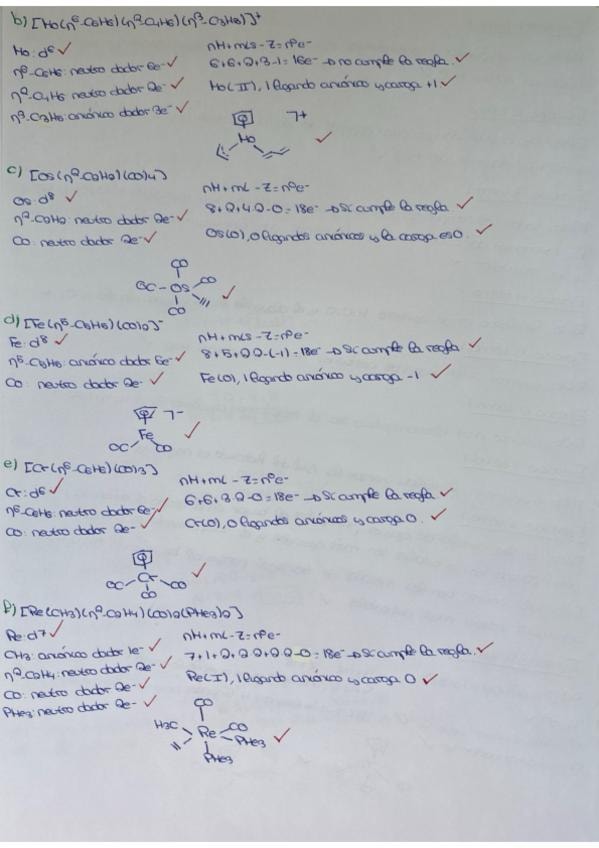 b) [Mo(η⁶-C6H6)(η²-C4H6)(η³-C3H5)]⁺
Mo: d⁶ ✓
η⁶-C6H6: neutro dador 6e⁻ ✓
η²-C4H6: neutro dador 2e⁻ ✓
η³-C3H5: aniónico dador 3e⁻ ✓
nM+mLs-Z=nºe⁻
6+6+2+3-1=16e⁻→no cumple la regla. ✓
Mo(II), 1 ligando aniónico y carga +1 ✓
⁺
Mo
✓
c) [Os(η²-C2H4)(CO)4]
Os: d⁸ ✓
η²-C2H4: neutro dador 2e⁻ ✓
CO: neutro dador 2e⁻ ✓
nM+mL-Z=nºe⁻
8+2+4·2-0=18e⁻→Sí cumple la regla. ✓
Os(0), 0 ligandos aniónicos y la carga es 0. ✓
CO
OC-Os
CO
CO
✓
d) [Fe(η⁵-C5H5)(CO)2]⁻
Fe: d⁸ ✓
η⁵-C5H5: aniónico dador 5e⁻ ✓
CO: neutro dador 2e⁻ ✓
nM+mLs-Z=nºe⁻
8+5+2·2-(-1)=18e⁻→Sí cumple la regla ✓
Fe(0), 1 ligando aniónico y carga -1 ✓
⁻
Fe
OC CO
✓
e) [Cr(η⁶-C6H6)(CO)3]
Cr: d⁶ ✓
η⁶-C6H6: neutro dador 6e⁻ ✓
CO: neutro dador 2e⁻ ✓
nM+mL-Z=nºe⁻
6+6+3·2-0=18e⁻→Sí cumple la regla ✓
Cr(0), 0 ligandos aniónicos y carga 0. ✓
Cr
OC CO CO
✓
f) [Re(CH3)(η²-C2H4)(CO)2(PMe3)2]
Re: d7 ✓
CH3: aniónico dador 1e⁻ ✓
η²-C2H4: neutro dador 2e⁻ ✓
CO: neutro dador 2e⁻ ✓
PMe3: neutro dador 2e⁻ ✓
nM+mL-Z=nºe⁻
7+1+2+2·2+2·2-0=18e⁻→Sí cumple la regla. ✓
Re(I), 1 ligando aniónico y carga 0 ✓
CO
H3C Re CO
PMe3
PMe3
✓